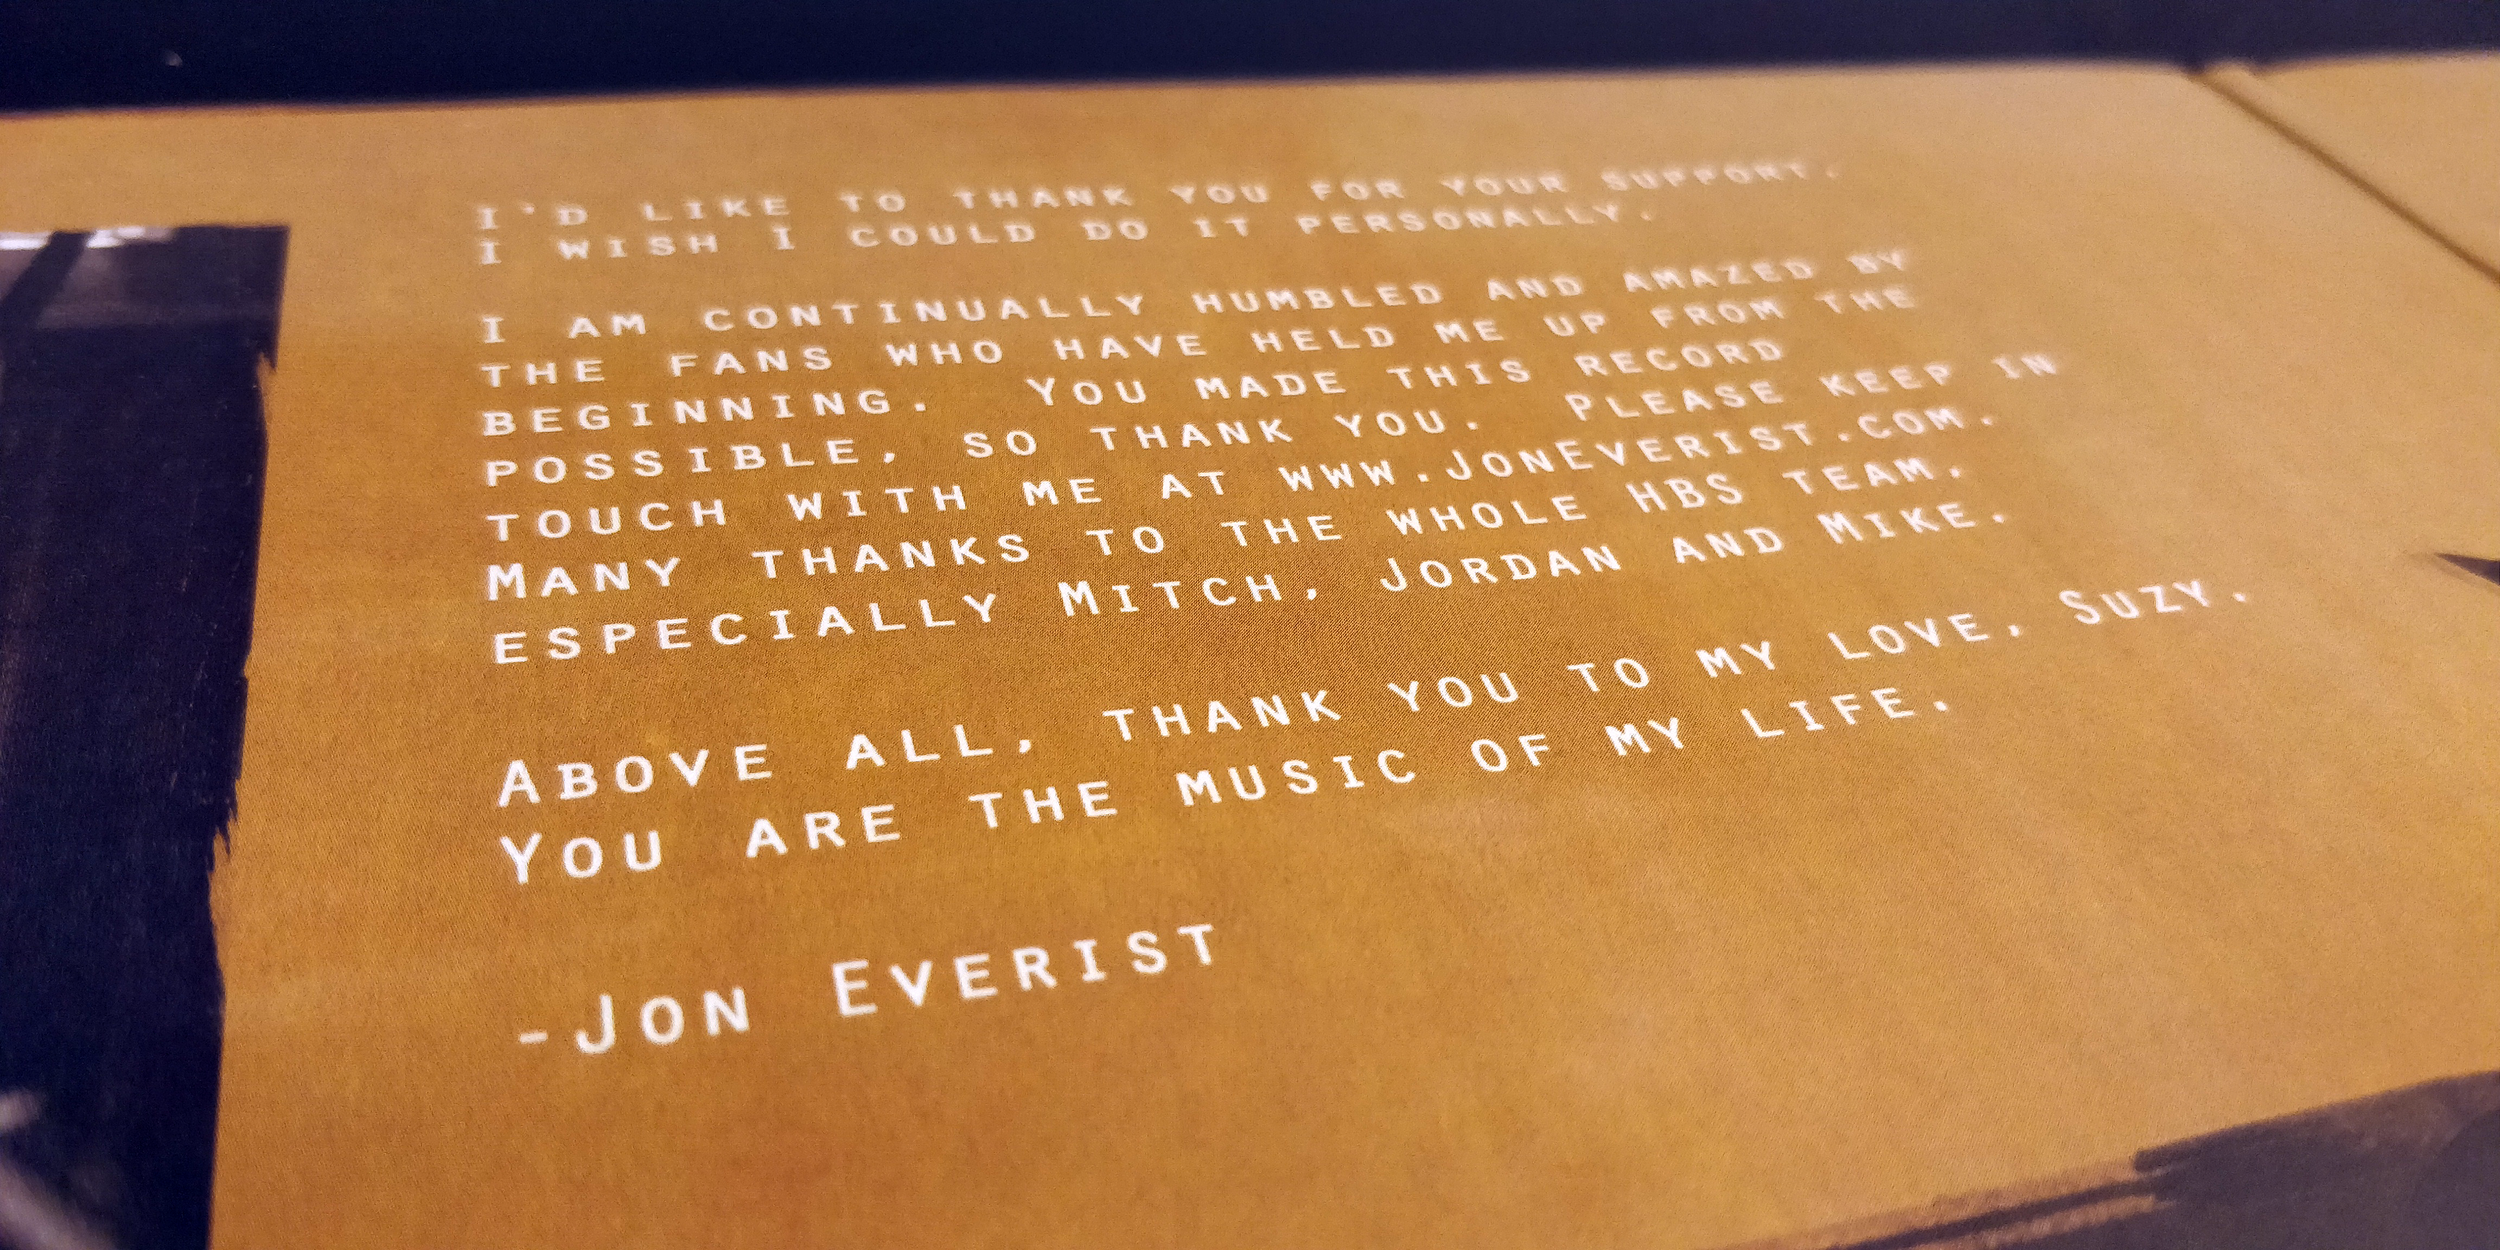 I'D LIKE TO THANK YOU FOR YOUR SUPPORT.
I WISH I COULD DO IT PERSONALLY.
I AM CONTINUALLY HUMBLED AND AMAZED BY
THE FANS WHO HAVE HELD ME UP FROM THE
BEGINNING. YOU MADE THIS RECORD
POSSIBLE, SO THANK YOU. PLEASE KEEP IN
TOUCH WITH ME AT WWW.JONEVERIST.COM.
MANY THANKS TO THE WHOLE HBS TEAM,
ESPECIALLY MITCH, JORDAN AND MIKE.
ABOVE ALL, THANK YOU TO MY LOVE, SUZY.
YOU ARE THE MUSIC OF MY LIFE.
-JON EVERIST